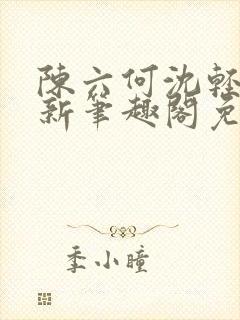 陳六何沈輕
新筆趣閣免
季小瞳